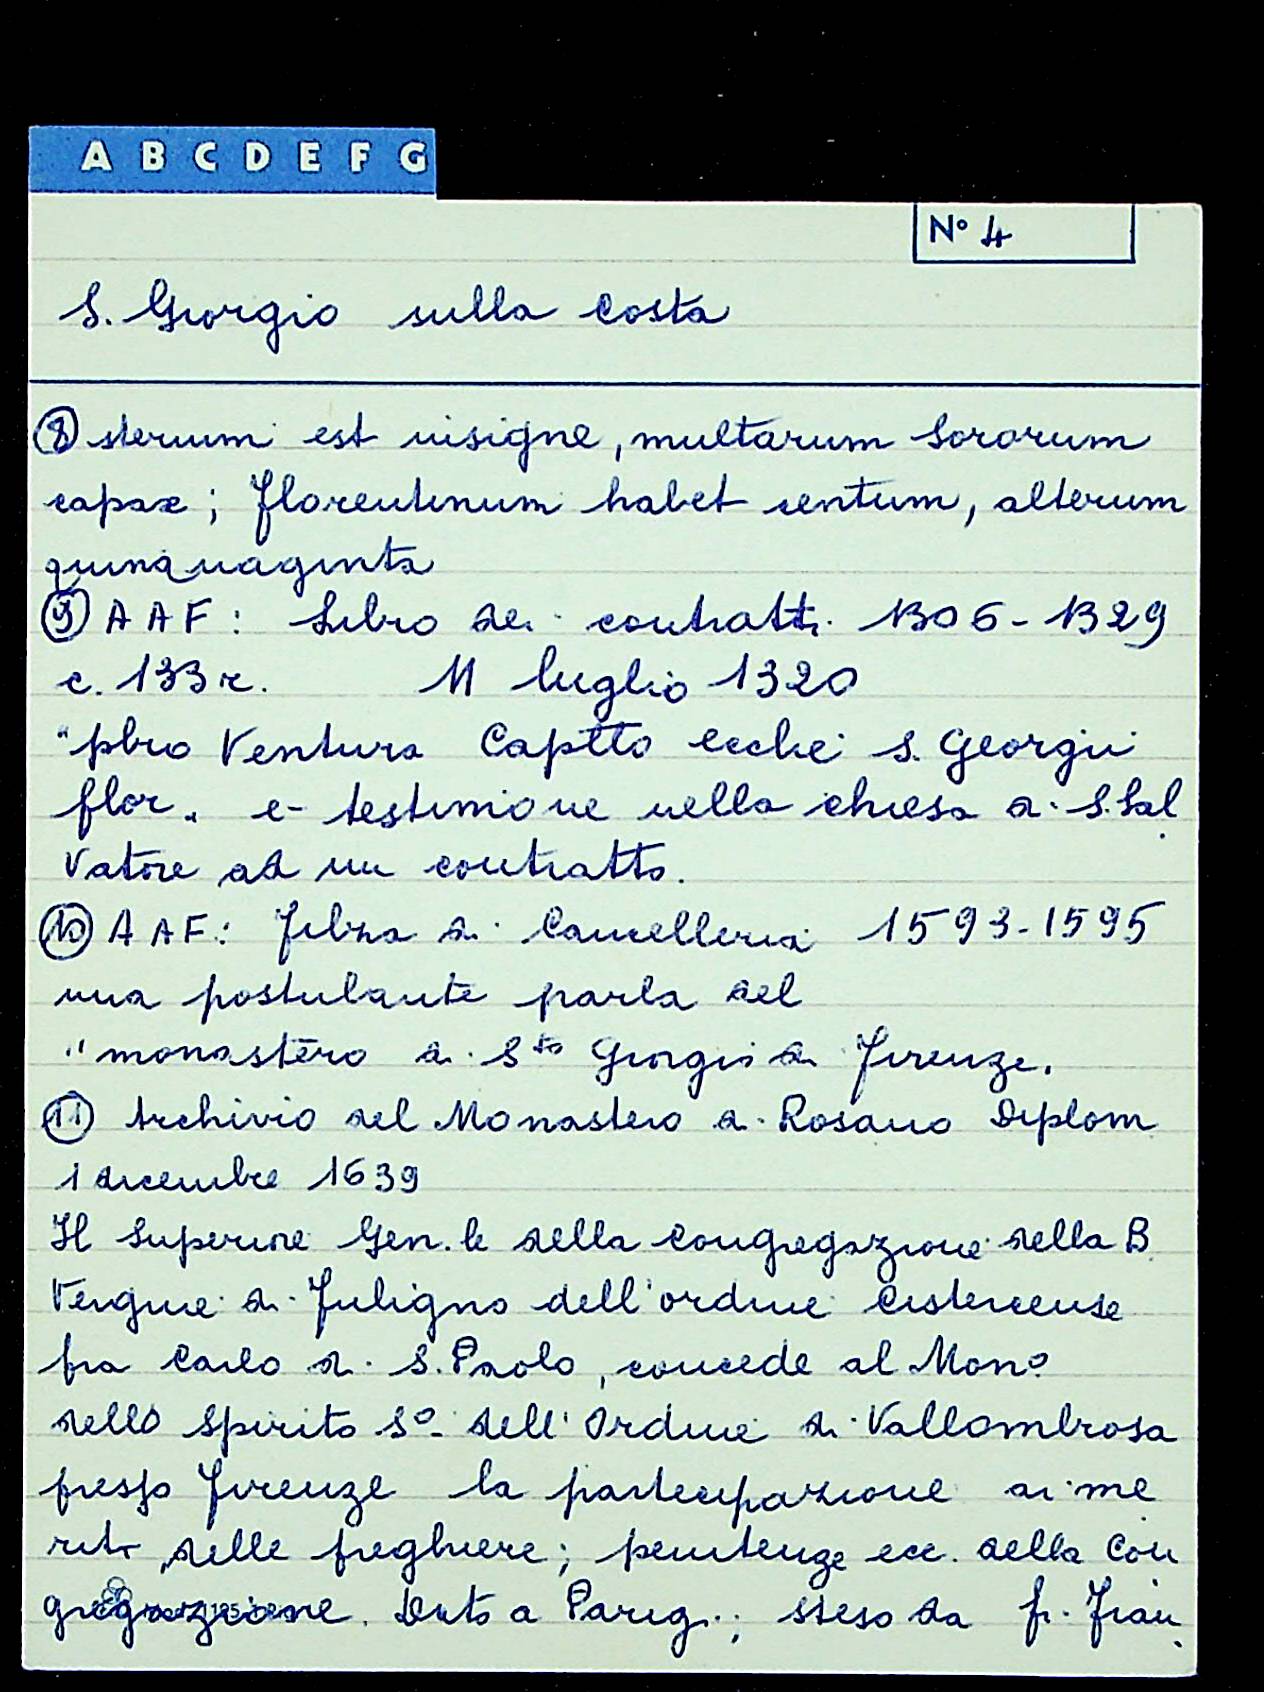 A B C D E F G
N° 4
S. Giorgio sulla Costa
⑧ sterium est insigne, multarum Sororum
capax; florentinum habet centum, alterum
quinquaginta
⑨ A A F: Libro dei contratti 1306-1329
c. 133 r. 11 luglio 1320
"pbro Ventura Captto ecclei s. Georgii
flor. e- testimone nella chiesa di S. Sal
vatore ad un contratto.
⑩ A A F: Filza di Cancelleria 1593-1595
una postulante parla del
"monastero di Sto Giorgio di Firenze.
⑪ Archivio del Monastero di Rosano Diplom
1 dicembre 1639
Il Superiore Gen.le della Congregazione della B
Vergine di Fuligno dell'ordine Cistercense
fra Carlo di S. Paolo, concede al Mon°
dello Spirito S° dell'Ordine di Vallombrosa
presso Firenze la partecipazione ai me
riti delle preghiere; penitenze ecc. della Con
gregazione. Dato a Parigi; steso da fr. Fran